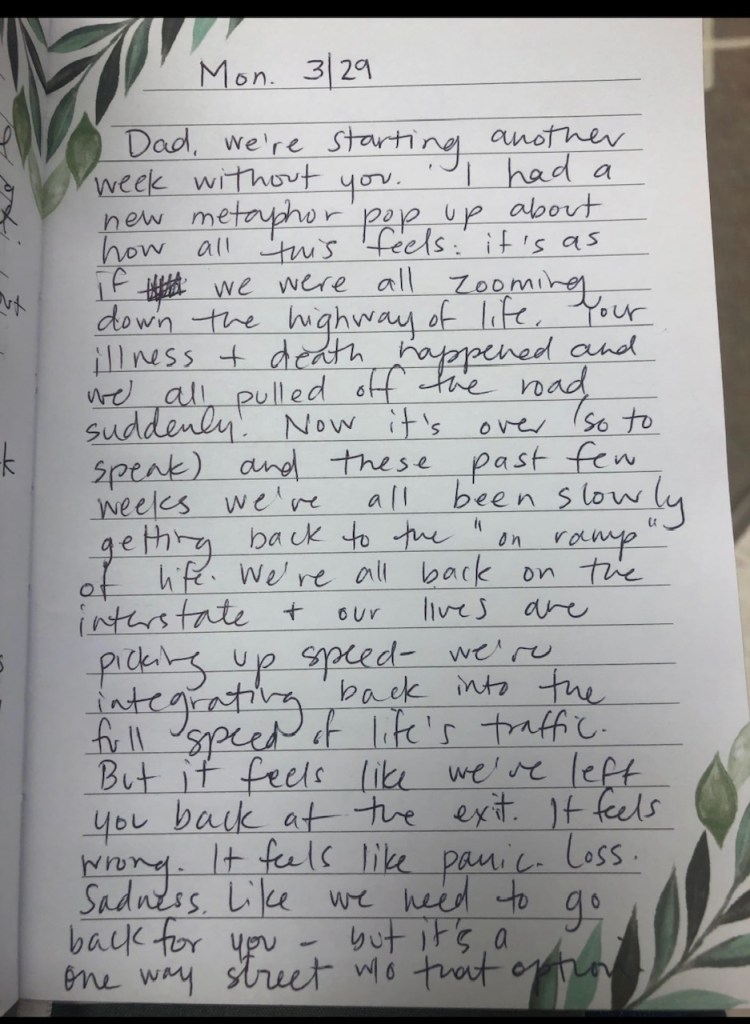 Mon. 3/29
Dad, we're starting another
week without you. I had a
new metaphor pop up about
how all this feels: it's as
if we were all zooming
down the highway of life. Your
illness + death happened and
we all pulled off the road
suddenly. Now it's over (so to
speak) and these past few
weeks we've all been slowly
getting back to the "on ramp"
of life. We're all back on the
interstate + our lives are
picking up speed- we're
integrating back into the
full speed of life's traffic.
But it feels like we've left
you back at the exit. It feels
wrong. It feels like panic. Loss.
Sadness. Like we need to go
back for you - but it's a
one way street w/o that option.